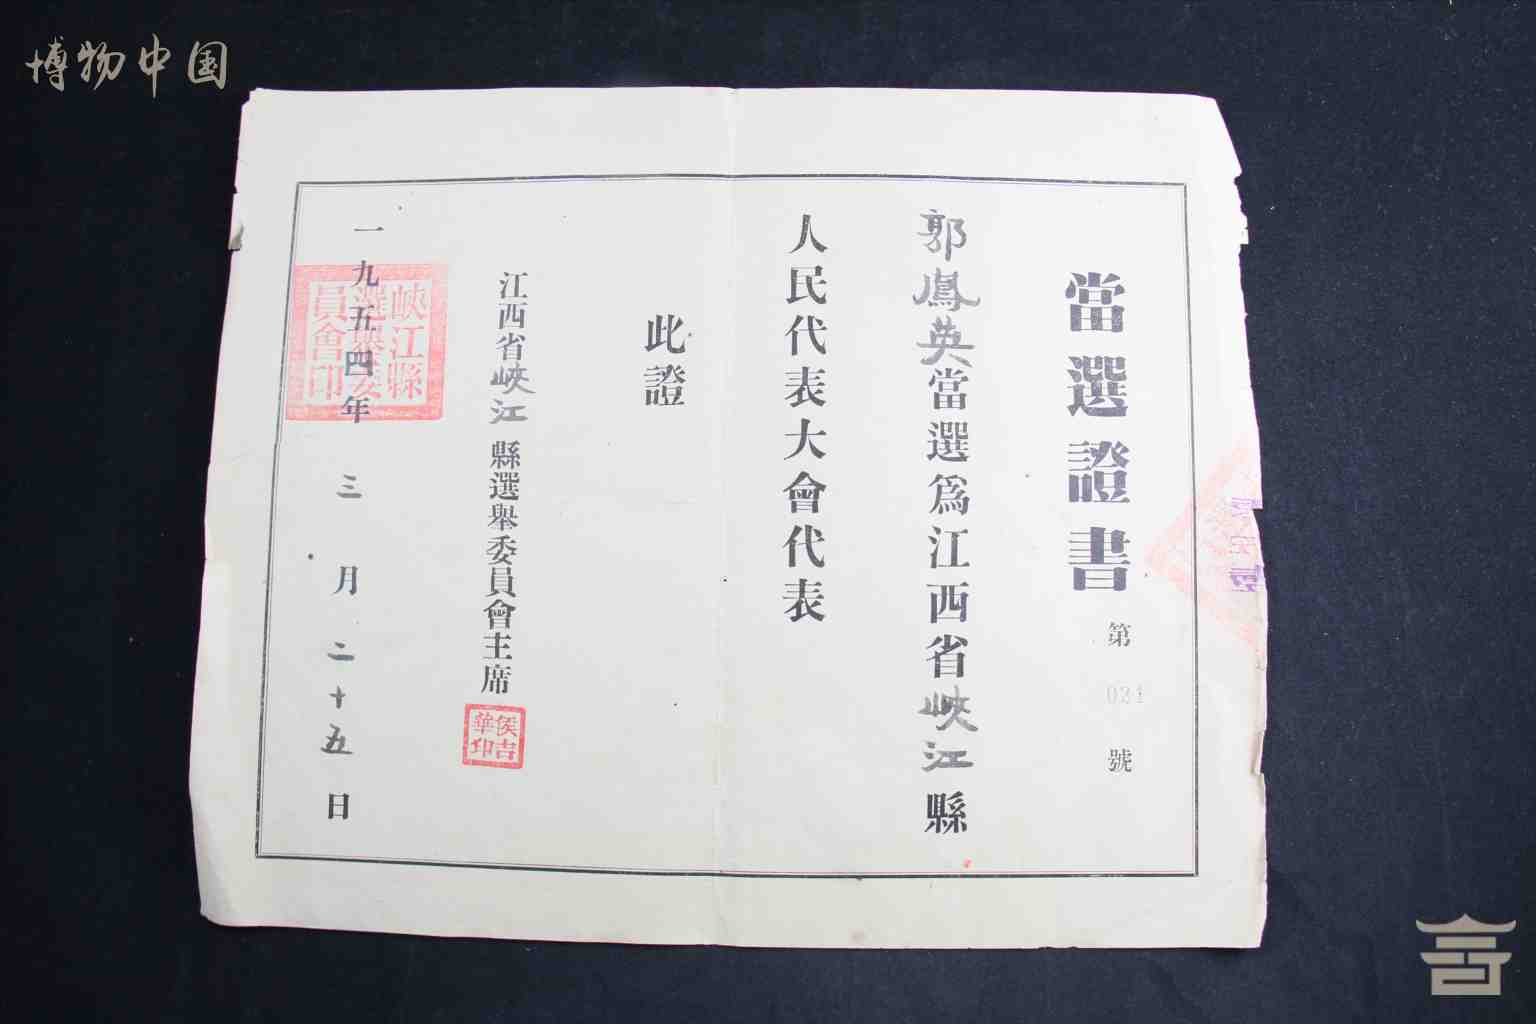 博物中国
當選證書
第021號
郭鳳英當選爲江西省峽江縣
人民代表大會代表
此證
江西省峽江縣選舉委員會主席
侯吉華印
一九五四年三月二十五日
峽江縣選舉委員會印